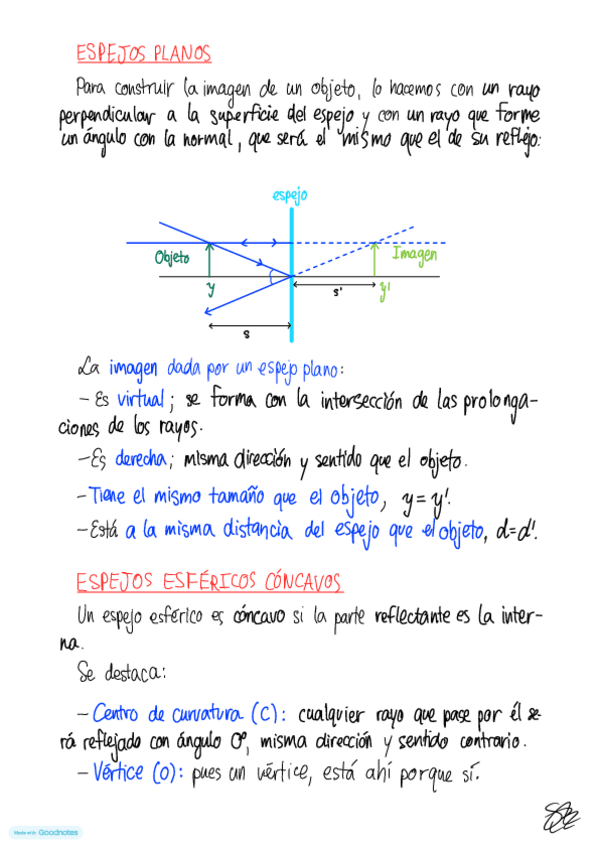 ESPEJOS PLANOS
Para construir la imagen de un objeto, lo hacemos con un rayo
perpendicular a la superficie del espejo y con un rayo que forme
un ángulo con la normal, que será el mismo que el de su reflejo:
espejo
Objeto
Imagen
y
s'
y'
s
La imagen dada por un espejo plano:
- Es virtual; se forma con la intersección de las prolonga-
ciones de los rayos.
- Es derecha; misma dirección y sentido que el objeto.
- Tiene el mismo tamaño que el objeto, y = y'.
- Está a la misma distancia del espejo que el objeto, d=d'.
ESPEJOS ESFÉRICOS CÓNCAVOS
Un espejo esférico es cóncavo si la parte reflectante es la inter-
na.
Se destaca:
- Centro de curvatura (C): cualquier rayo que pase por él se-
rá reflejado con ángulo 0º, misma dirección y sentido contrario.
- Vértice (O): pues un vértice, está ahí porque sí.
Made with Goodnotes